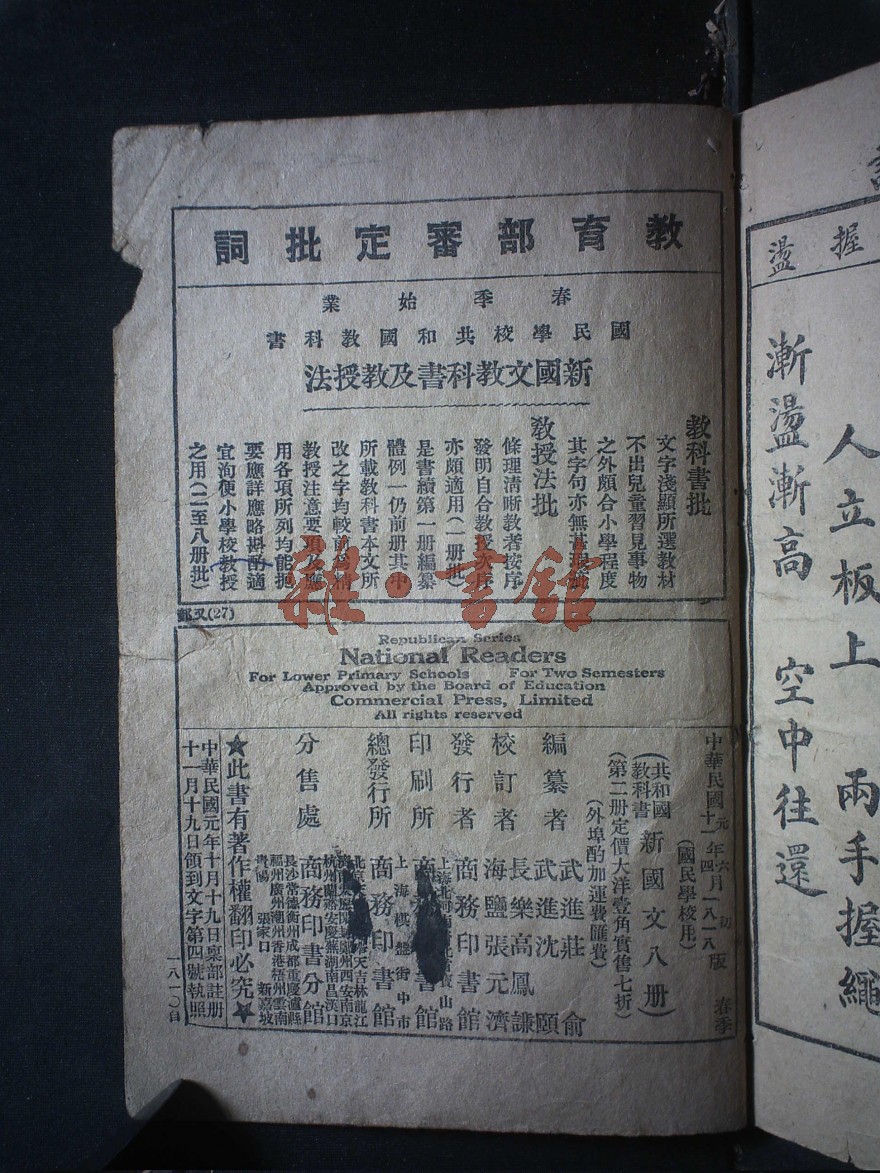 教育部審定批詞
春季始業
國民學校共和國教科書
新國文教科書及教授法
教科書批
文字淺顯所選教材
不出兒童習見事物
之外頗合小學程度
其字句亦無
教授法批
條理清晰教者按序
發明自合教授次序
亦頗適用(一册批)
是書續第一册編纂
體例一仍前册其中
所載教科書本文所
改之字均較前為精
教授注意要項及應
用各項所列均能扼
要應詳應略斟酌適
宜洵便小學校教授
之用(二至八册批)
(27)
雜·書館
Republican Series
National Readers
For Lower Primary Schools For Two Semesters
Approved by the Board of Education
Commercial Press, Limited
All rights reserved
中華民國元年六月初版
十一年四月一八一八版
春季
(國民學校用)
(共和國教科書 新國文八册)
(第二册定價大洋壹角實售七折)
(外埠酌加運費匯費)
編纂者 武進莊俞
武進沈頤
校訂者 長樂高鳳謙
海鹽張元濟
發行者 商務印書館
印刷所 上海北河 路
商 書館
總發行所 上海棋盤街中市
商務印書館
分售處 商務印書分館
北京 天吉林龍江
西安南京
杭州蘭谿安慶蕪湖南昌漢口
長沙常德衡州成都重慶瀘縣
福州廣州潮州香港梧州雲南
貴陽 張家口 新嘉坡
★此書有著作權翻印必究★
中華民國元年十月十九日稟部註册
十一月十九日領到文字第四號執照
一八一〇日
握
盪
人立板上 兩手握繩
漸盪漸高 空中往還